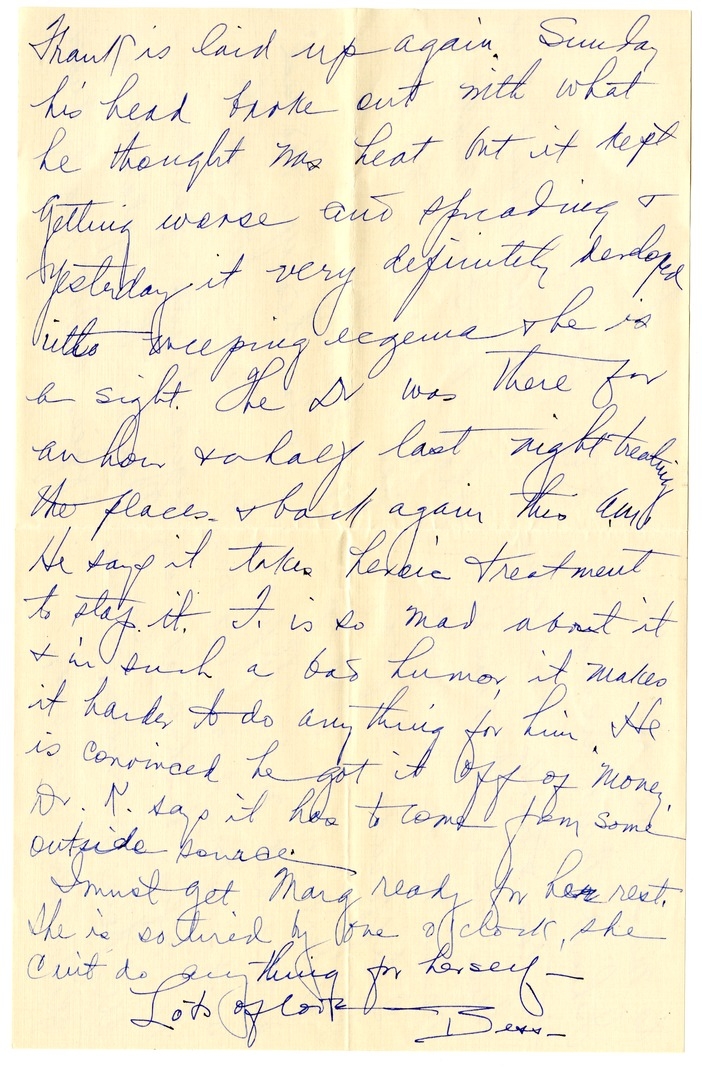 Frank is laid up again. Sunday
his head broke out with what
he thought was heat but it kept
getting worse and spreading &
yesterday it very definitely developed
into weeping eczema & he is
a sight. The Dr was there for
an hour & a half last night treating
the places & back again this a.m.
He says it takes heroic treatment
to stop it. F. is so mad about it
& in such a bad humor, it makes
it harder to do anything for him. He
is convinced he got it off of "money."
Dr. K. says it has to come from some
outside source.
I must get Marg ready for her rest.
She is so tired by one o'clock, she
can't do anything for herself —
Lots of love —
Bess —